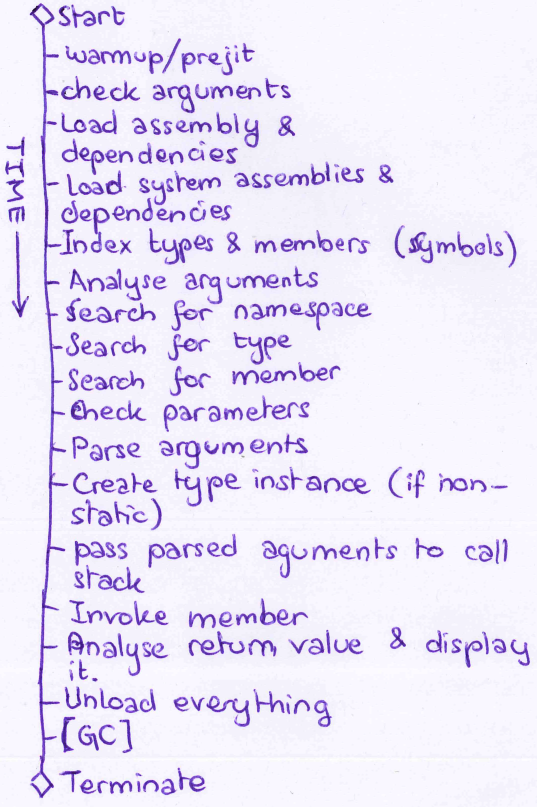 Start
warmup/prejit
check arguments
Load assembly &
dependencies
Load system assemblies &
dependencies
Index types & members (symbols)
Analyse arguments
Search for namespace
Search for type
Search for member
Check parameters
Parse arguments
Create type instance (if non-
static)
pass parsed aguments to call
stack
Invoke member
Analyse return value & display
it.
Unload everything
[GC]
Terminate
TIME